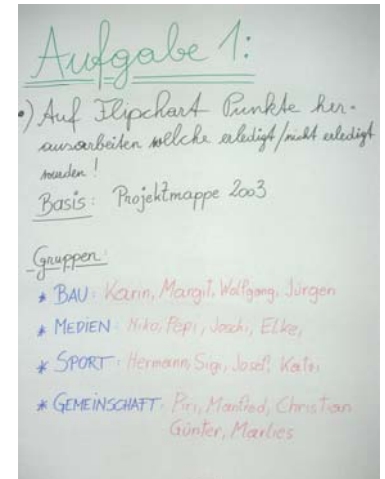 Aufgabe 1:
•) Auf Flipchart Punkte her-
ausarbeiten welche erledigt/nicht erledigt
wurden!
Basis: Projektmappe 2003
Gruppen:
* BAU: Karin, Margit, Wolfgang, Jürgen
* MEDIEN: Niko, Pepi, Joschi, Elke,
* SPORT: Hermann, Sigi, Josef,
* GEMEINSCHAFT: Piri, Manfred, Christian
Günter, Marlies